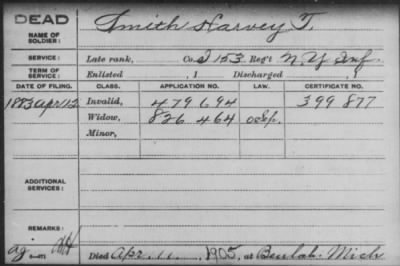 DEAD
NAME OF SOLDIER: Smith Harvey T.
SERVICE: Late rank, Co. I 153 Reg't N.Y. Inf.
TERM OF SERVICE: Enlisted , 1 Discharged , 1
DATE OF FILING. CLASS. APPLICATION NO. LAW. CERTIFICATE NO.
1883 Apr 12 Invalid, 479 694 399 877
Widow, 826 464
Minor,
ADDITIONAL SERVICES:
REMARKS:
Died Apr. 11, 1905, at Beulah. Mich